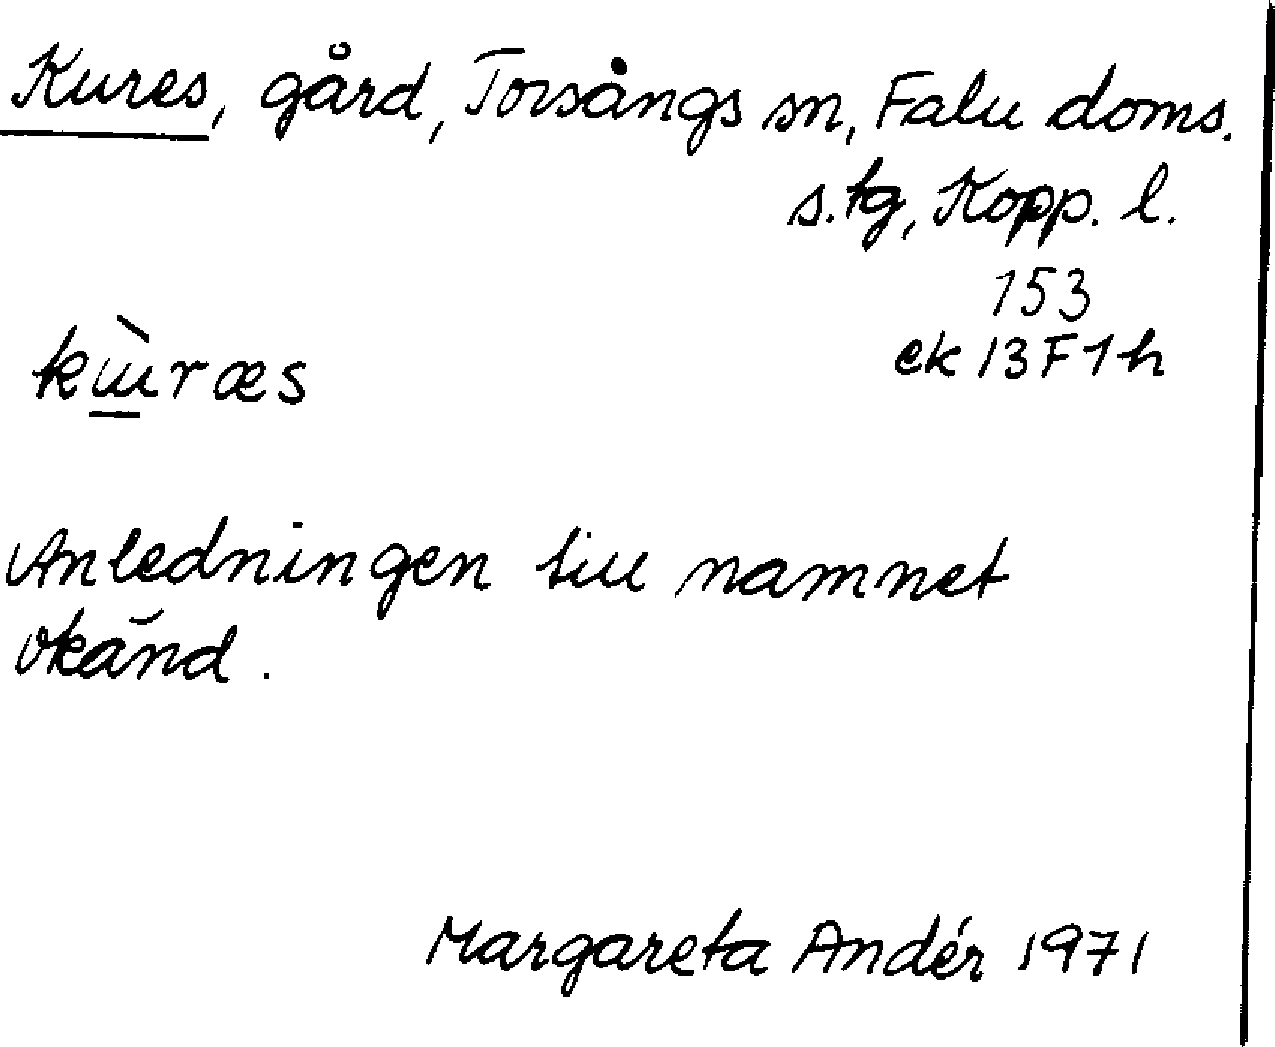 Kures, gård, Torsångs sn, Falu doms.
s.tg, Kopp. l.
153
ek 13F1h
kɯ̀ræs
Anledningen till namnet
okänd.
Margareta Andér 1971